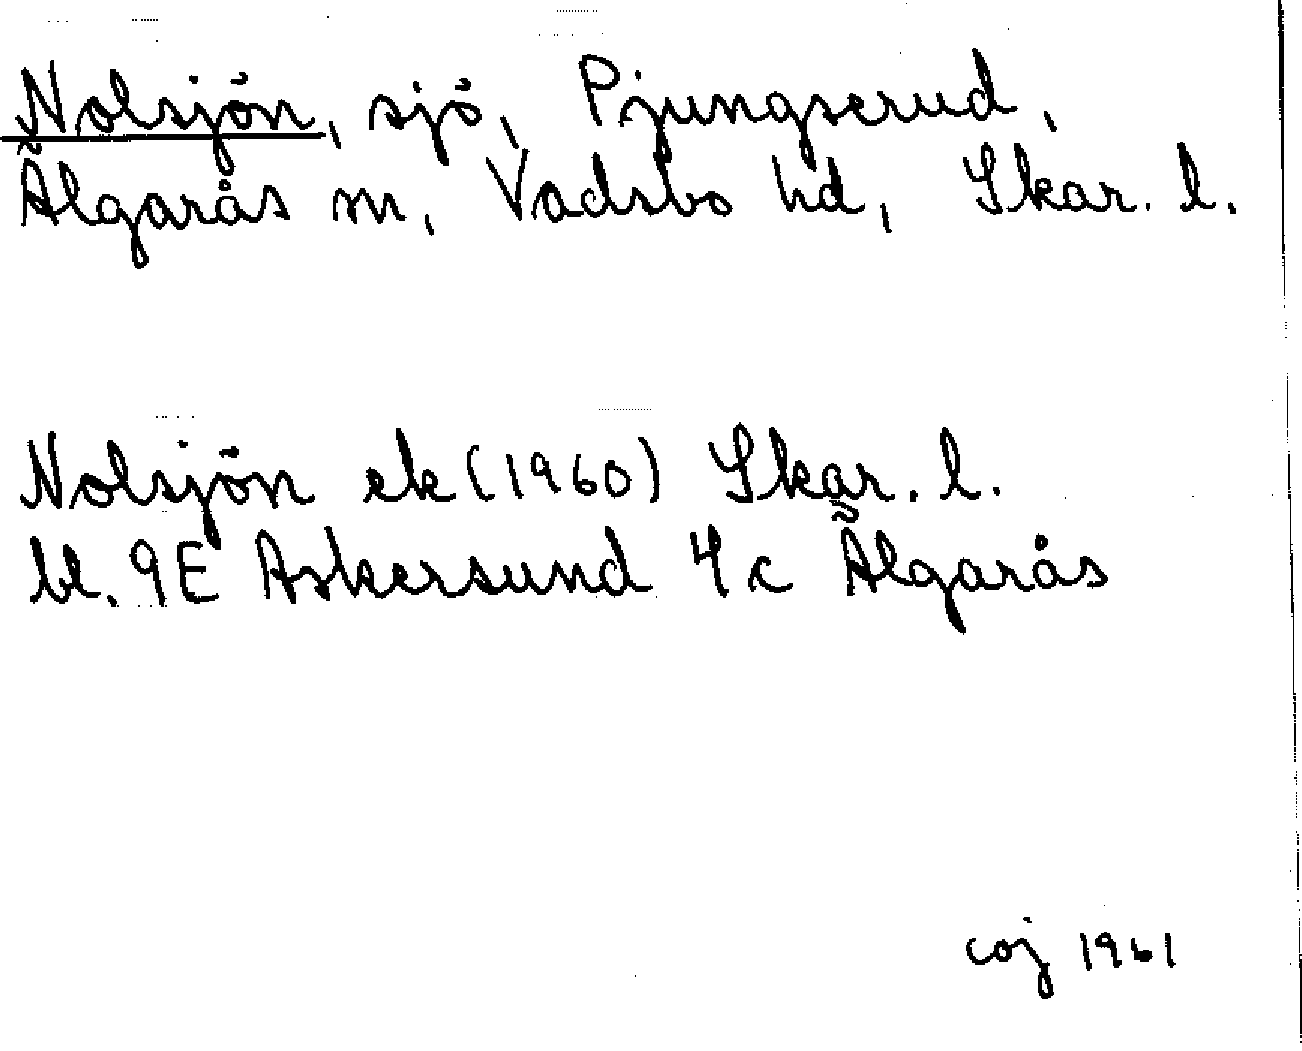 Nolsjön, sjö, Pjungserud,
Älgarås sn, Vadsbo hd, Skar. l.
Nolsjön ek (1960) Skar. l.
bl. 9E Askersund 4c Älgarås
coj 1961